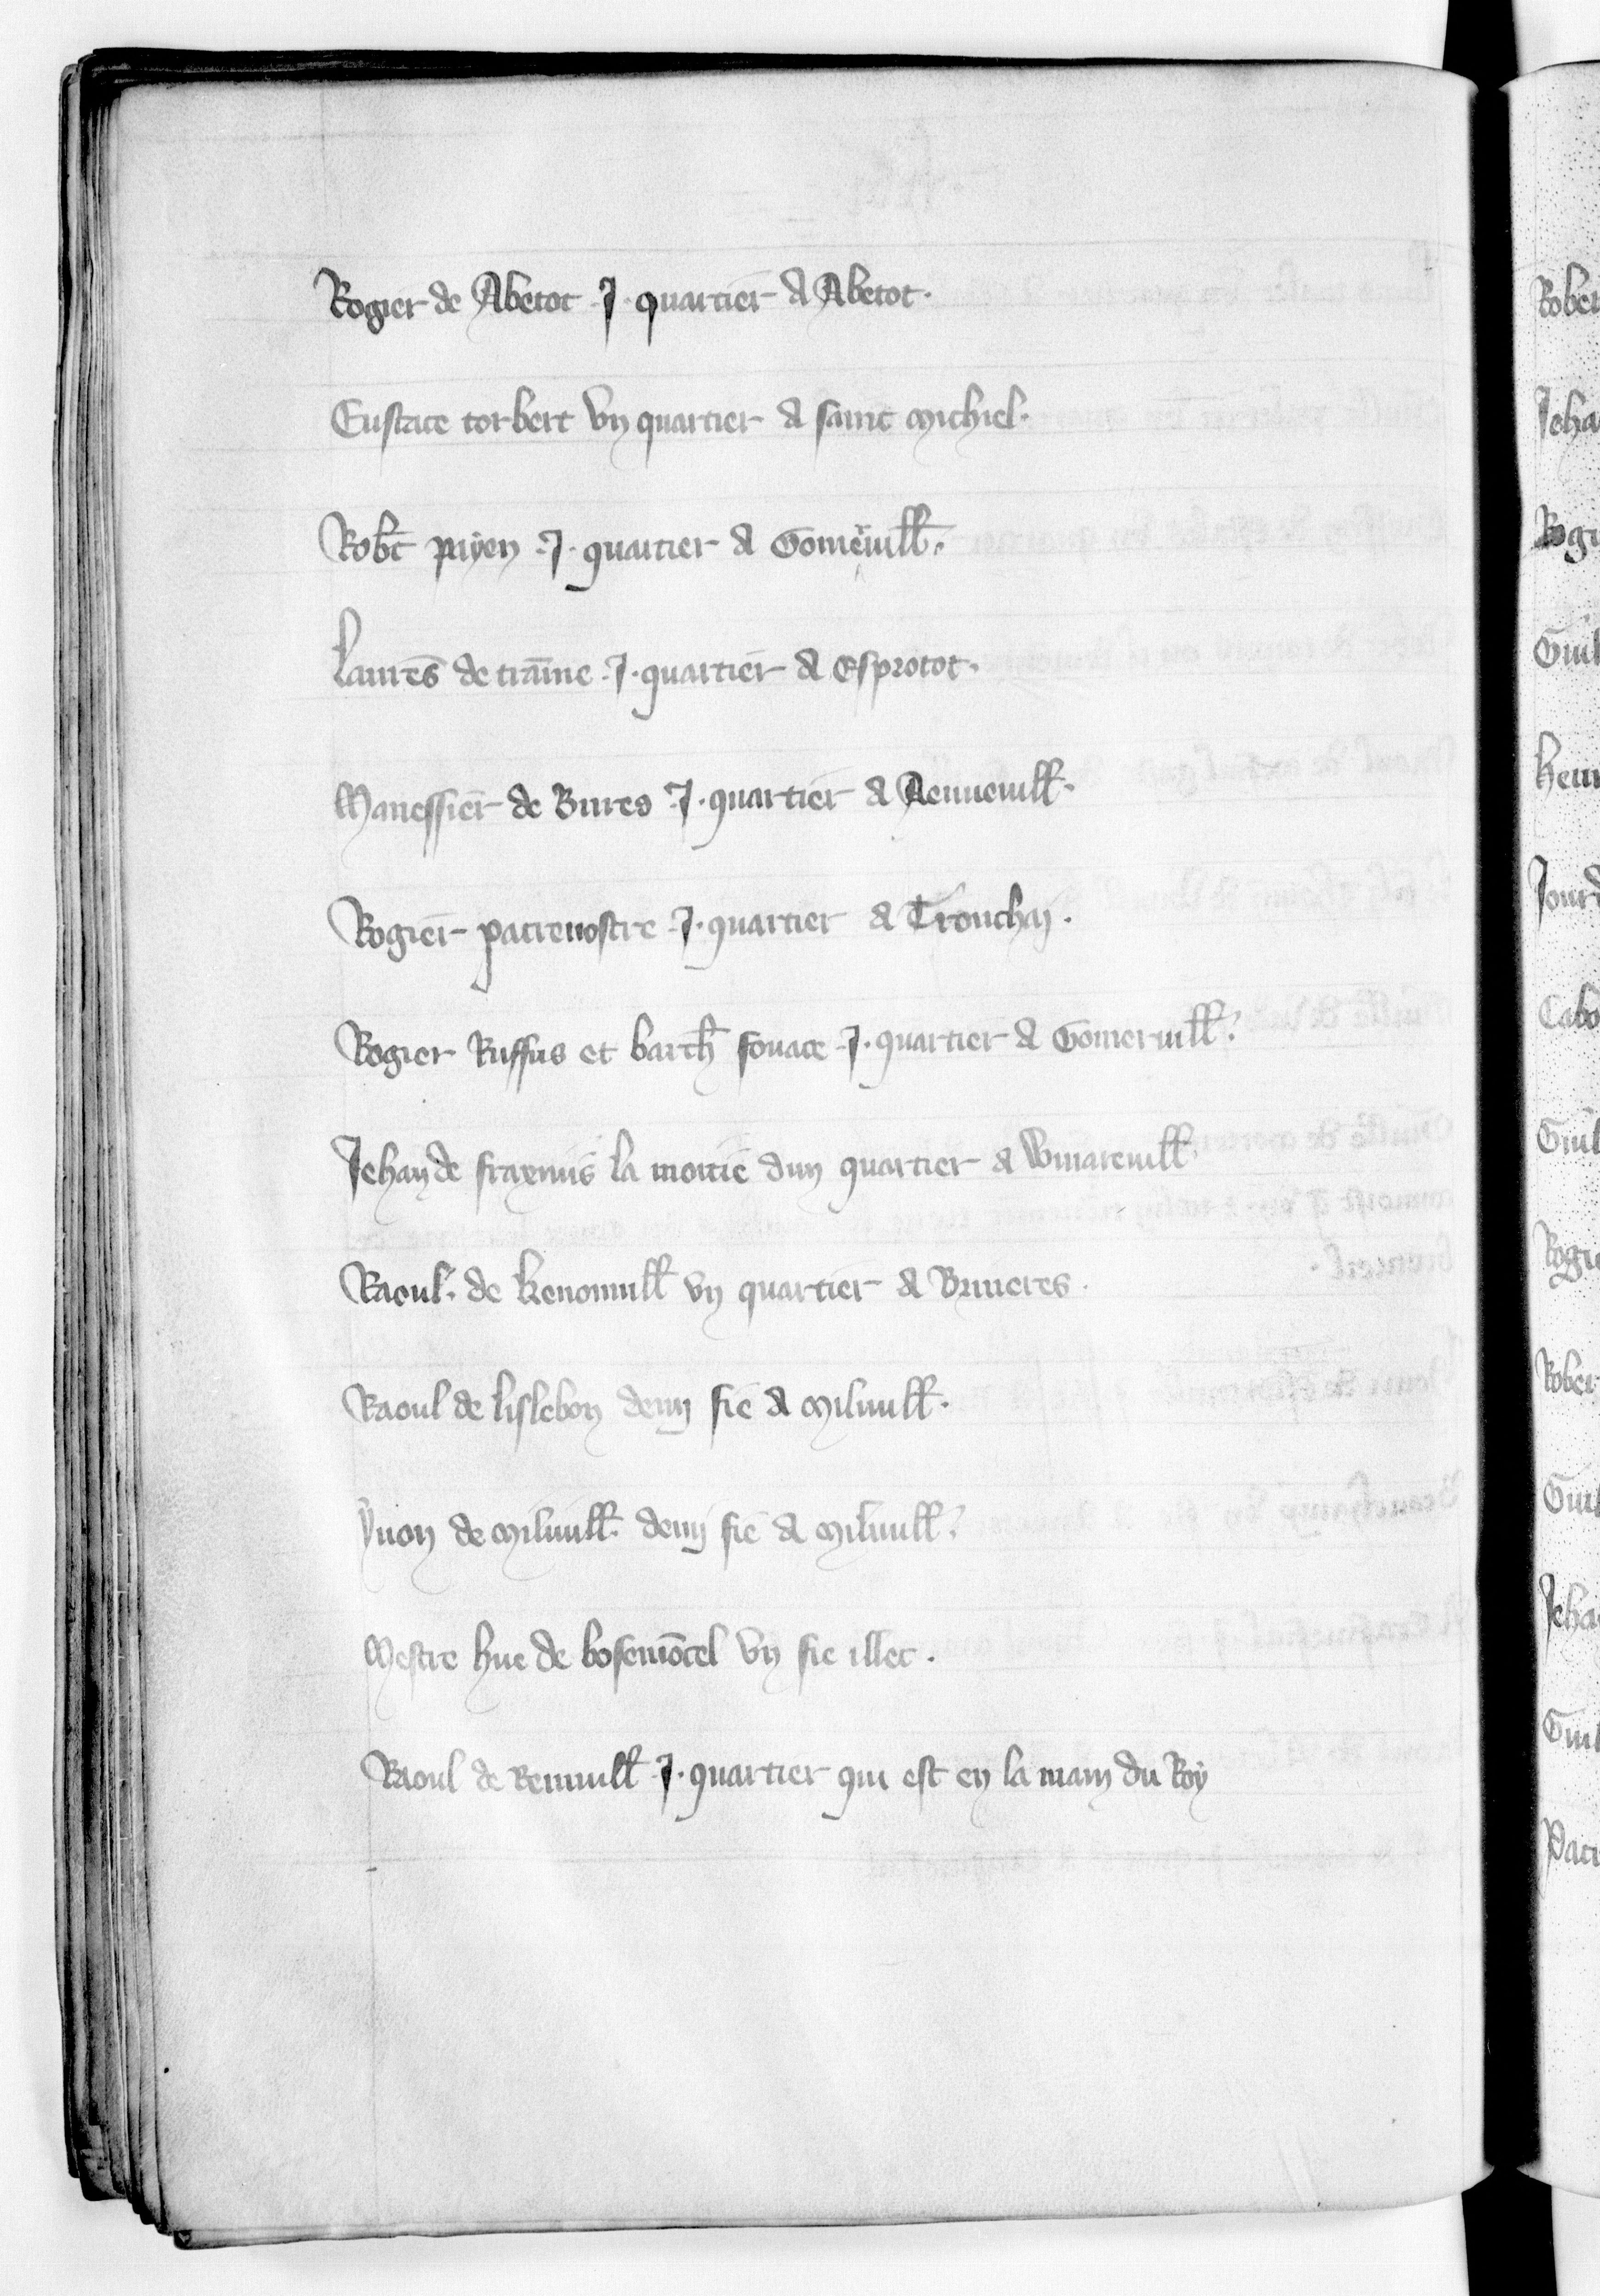 Rogier de Abetot .J. quartier A Abetot.
Eustace torbert vn quartier A saint michiel.
Robt̄ payen .J. quartier A Gomeuill̄.
Laurēs de trāme .J. quartier A Esprotot.
Manessier de Bures .J. quartier A Aenueuill̄.
Rogier patrenostre .J. quartier A Tronchay.
Rogier Ruffus et barth̄ fouace .J. quartier A Gomeruill̄.
Jehan de fraxinis la moitie dun quartier A Wmareuill̄.
Raoul. de kenouuill̄ vn quartier A Bruieres.
Raoul de lislebon demy fie A miluill̄.
Yuon de miluill̄. demy fie A miluill̄.
Mestre hue de bosemōcel vn fie illec.
Raoul de Remuill̄ .J. quartier qui est en la main du Roy
Rober
Jeha
Rogi
Guil
henr
Jourd
Cabo
Guil
Rogie
Rober
Guil
Jeha
Guil